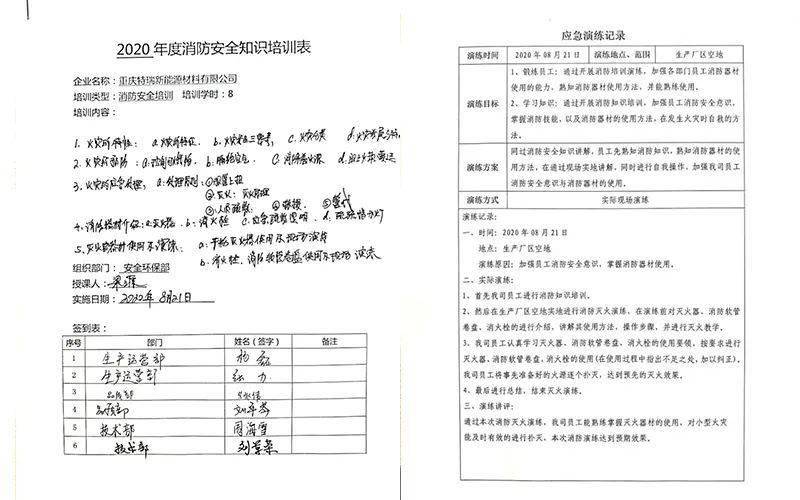 2020 年度消防安全知识培训表
企业名称：重庆特瑞新能源材料有限公司
培训类型：消防安全培训 培训学时：8
培训内容：
1. 火灾的特性： a. 火灾的特征 b. 火灾的三要素 c. 火灾分类
2. 火灾的预防：
3. 火灾的应急处理： a. 处理原则：①
②
③ 人员疏散 ④ ⑤
4. 消防器材介绍：a. 灭火器 b. 消火栓 c. d.
5. 灭火器材使用及演练： a. 干粉灭火器使用及现场演练
b. 消火栓、消防软管卷盘使用及现场演练
组织部门： 安全环保部
授课人：
实施日期：2020年8月21日
签到表：
序号 部门 姓名（签字） 备注
1 生产运营部 杨磊
2 生产运营部 张力
3 品质部
4 品质部
5 技术部 周海雪
6 技术部
应急演练记录
演练时间 2020 年 08 月 21 日 演练地点、范围 生产厂区空地
演练目标
1、锻炼员工：通过开展消防培训演练，加强各部门员工消防器材
使用的能力，熟知消防器材使用方法，并能熟练使用。
2、学习知识：通过开展消防知识培训，加强员工消防安全意识，
掌握消防技能，以及消防器材的使用方法，在发生火灾时自我的方
法。
演练方案
同过消防安全知识讲解，员工先熟知消防知识，熟知消防器材的使用
方法，在通过现场实地讲解，同时进行自我操作，加强我司员工消
防安全意识与消防器材的使用。
演练方式 实际现场演练
演练记录：
一、时间：2020 年 08 月 21 日
地点：生产厂区空地
演练原因：加强员工消防安全意识，掌握消防器材使用。
二、实际演练：
1、首先我司员工进行消防知识培训。
2、然后在生产厂区空地实地进行消防灭火演练，在演练前对灭火器、消防软管
卷盘、消火栓的进行介绍，讲解其使用方法，操作步骤，并进行灭火教学。
3、我司员工认真学习灭火器、消防软管卷盘、消火栓的使用要领，按要求进行
灭火器、消防软管卷盘、消火栓的使用(在使用过程中指出不足之处，加以纠正)。
我司员工将事先准备好的火源逐个扑灭，达到预先的灭火效果。
4、最后进行总结，结束灭火演练。
三、演练讲评：
通过本次消防灭火演练，我司员工能熟练掌握灭火器材的使用，对小型火灾
能及时有效的进行扑灭，本次消防演练达到预期效果。